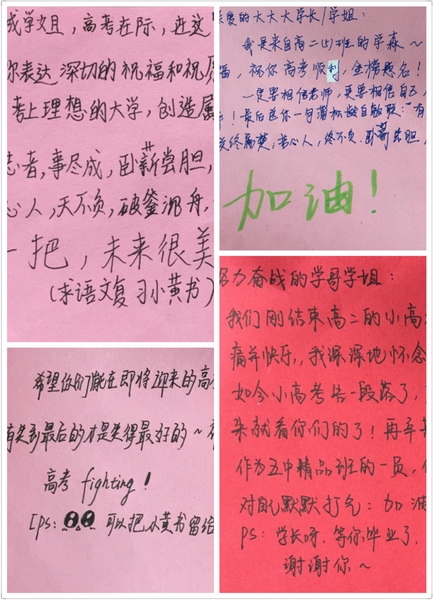 或学姐，高考在际，在这
你表达深切的祝福和祝
考上理想的大学，创造属
志者，事尽成，卧薪尝胆，
心人，天不负，破釜沉舟，
一把，未来很美
(求语文复习小黄书)
爱的大大大学长/学姐：
我是来自高二(5)班的学森～
祝你高考顺利，金榜题名！
一定要相信老师，更要相信自己，
！最后送你一自蒲松龄自勉联："有
关终属楚，苦心人，终不负，卧薪尝胆，
加油！
希望你们能在即将迎来的高
有笑到最后的才是笑得最好的～
高考 fighting！
[ps: 可以把小黄书留给
努力奋战的学哥学姐：
我们刚结束高二的小高
痛并快乐，我深深地怀念
如今小高考告一段落了，
来就看你们的了！再辛
作为五中精品班的一员，
对自己默默打气：加油
PS：学长呀，等你毕业了，
谢谢你～